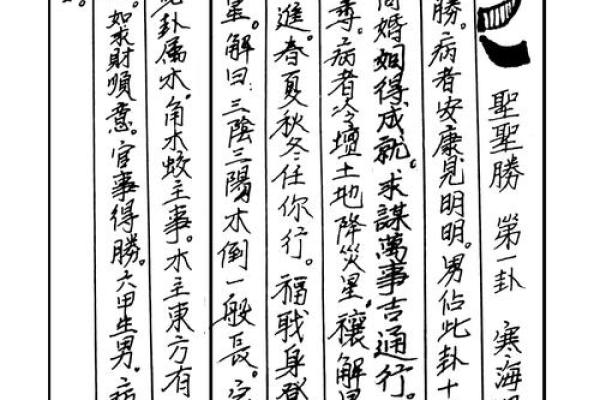 聖聖勝 第一卦 寒海
勝。病者安康見明明。男佔此卦十
婚姻得成就。求謀萬事吉通行。
尊。病者冷壇土地降災星。禳解
進。春夏秋冬任你行。福戢身登
星。解曰：三陰三陽木倒一般長。
卦属木。角木蛟主事。木主東方有
如求財順意。官事得勝。六甲生男。病